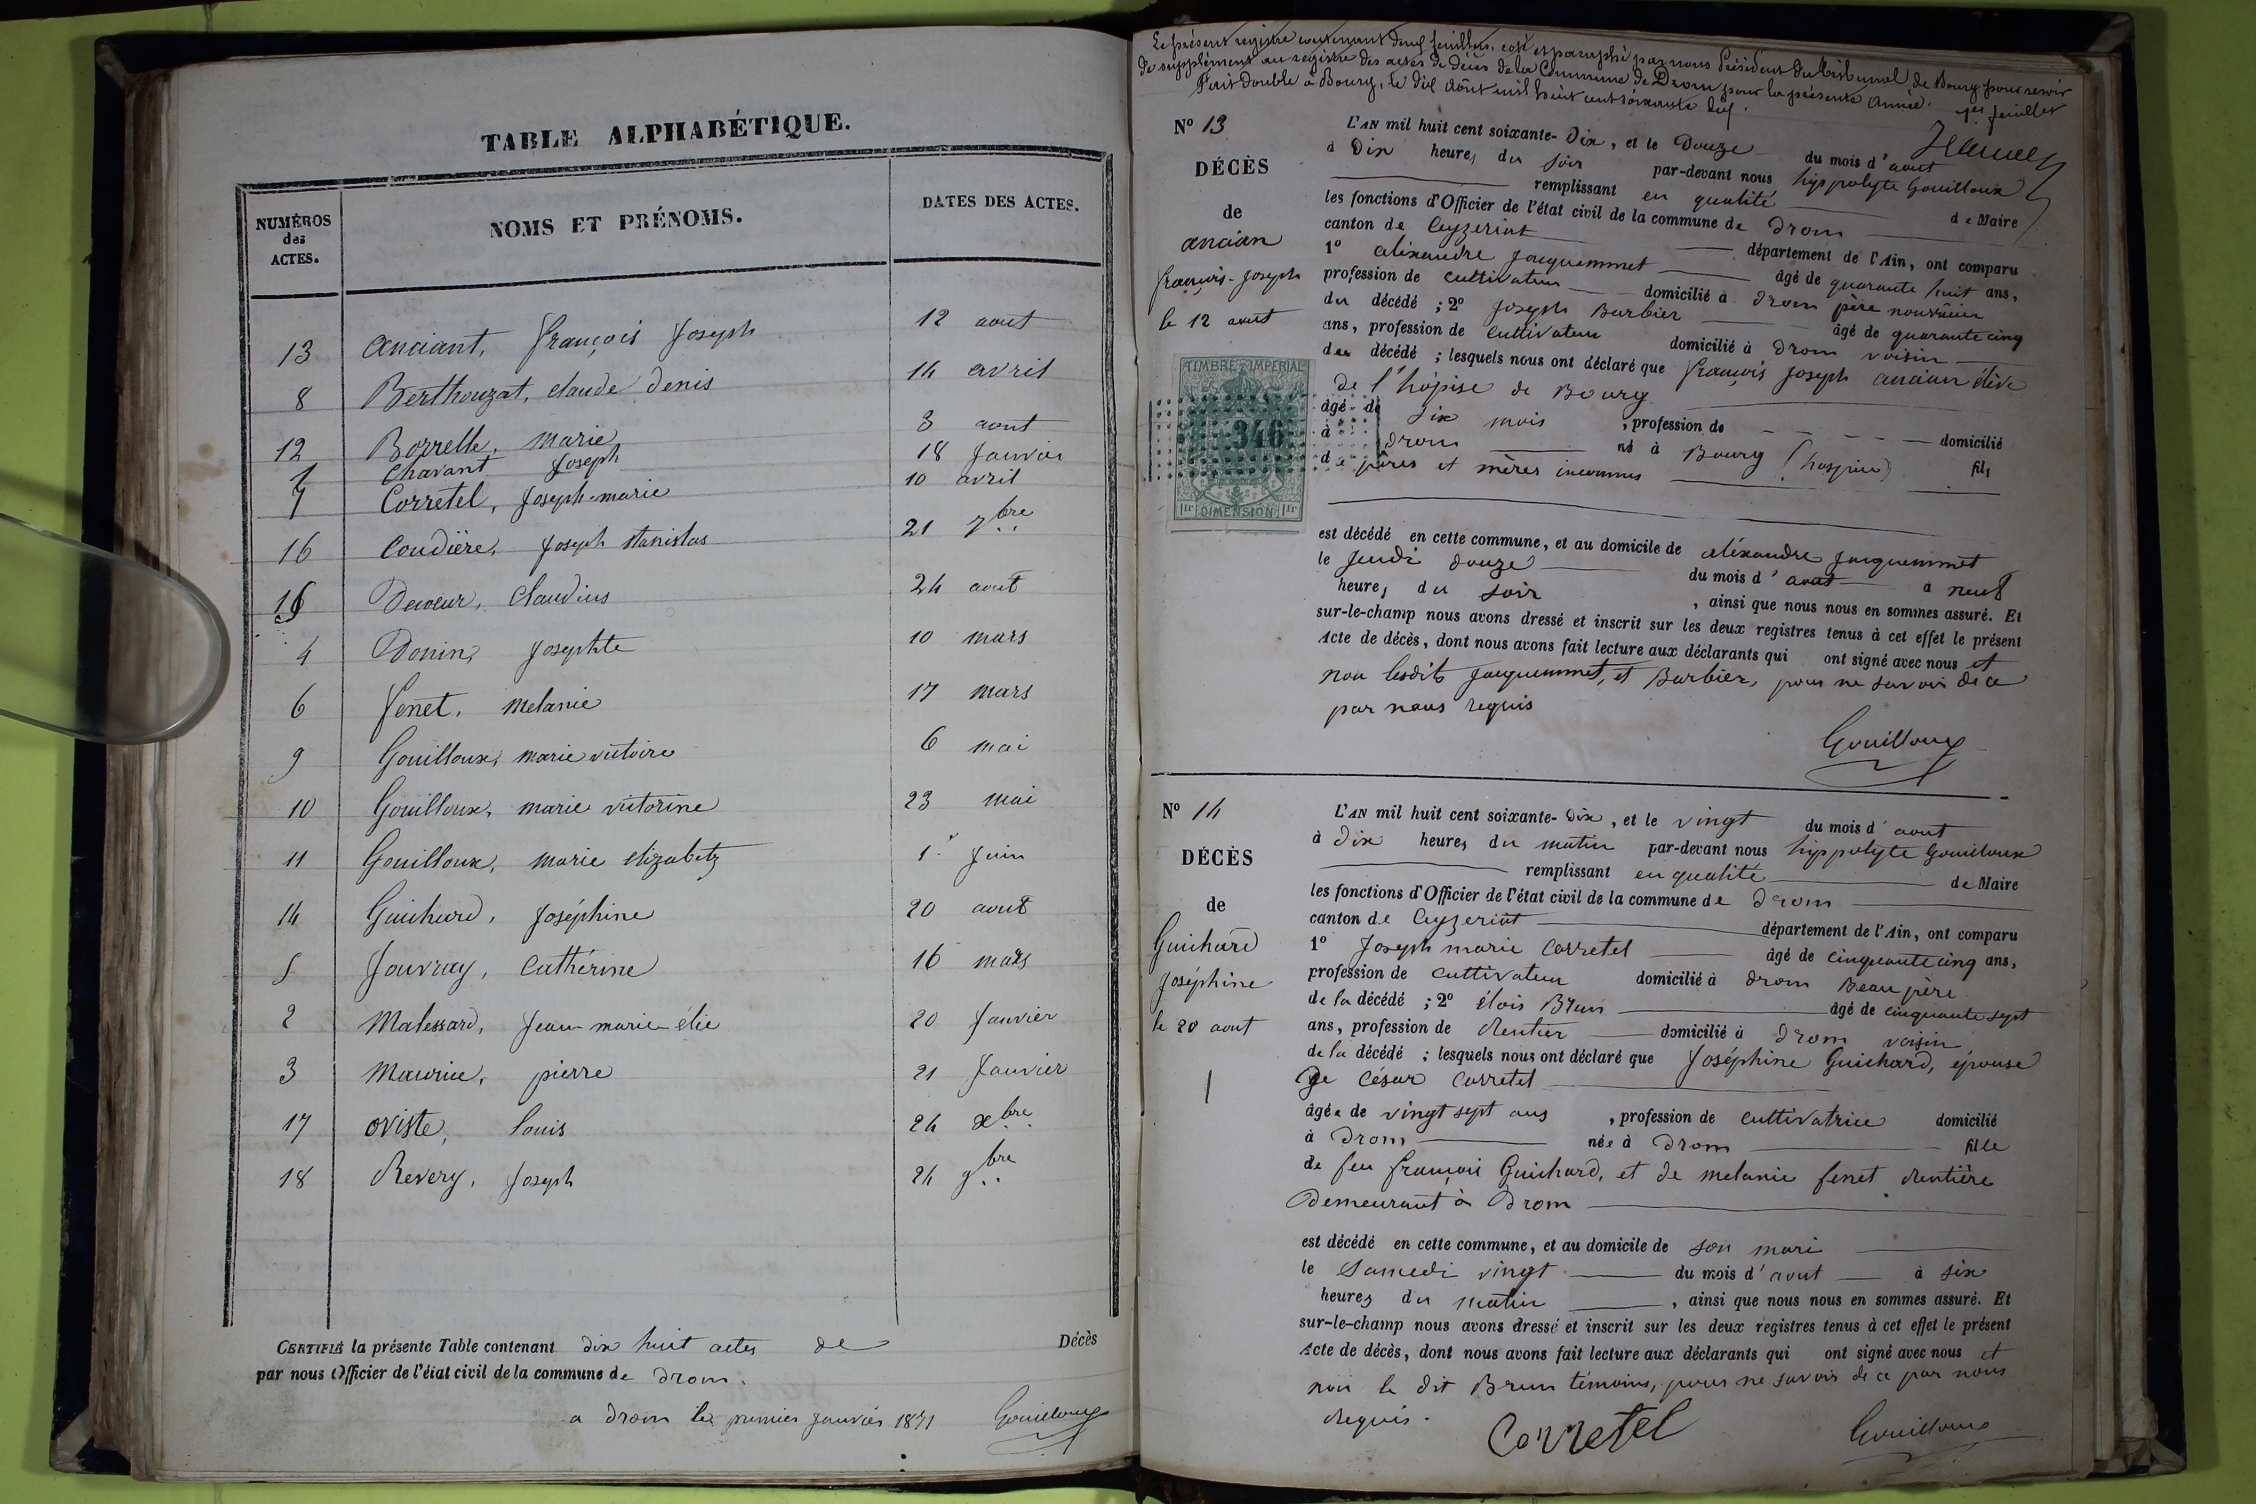 TABLE ALPHABÉTIQUE.
NUMÉROS des ACTES. NOMS ET PRÉNOMS. DATES DES ACTES.
13 anciant, françois Joseph 12 aout
8 Berthouzat, claude denis 14 avril
12 Borrelle, Marie 3 aout
1 Chavant Joseph 18 Janvier
7 Corretel, Joseph-marie 10 avril
16 Coudière, Joseph stanislas 21 7bre
15 Decoeur, Claudius 24 aout
4 Donin, Josephte 10 mars
6 fenet, melanie 17 mars
9 Gouilloux, marie victoire 6 mai
10 Gouilloux, marie victorine 23 mai
11 Gouilloux, marie elizabeth 1er Juin
14 Guichard, Joséphine 20 aout
5 Jouvray, Cathérine 16 mars
2 Malessard, Jean-marie-élie 20 Janvier
3 Maurice, pierre 21 Janvier
17 oviste, louis 24 xbre
18 Revery, Joseph 24 9bre
CERTIFIÉ la présente Table contenant dix huit actes de Décès
par nous Officier de l'état civil de la commune de Drom.
a Drom le premier Janvier 1871 Gouilloux
Le présent registre contenant deux feuillets, coté et paraphé par nous Président du Tribunal de Bourg pour servir
de supplément au registre des actes de décès de la Commune de Drom pour la présente année.
Fait double à Bourg, le dix août mil huit cent soixante dix. 1er feuillet
N° 13
DÉCÈS
de
ancian
françois-Joseph
le 12 aout
L'AN mil huit cent soixante-Dix, et le Douze du mois d'aout
à Dix heures du soir par-devant nous hyppolyte Gouilloux
remplissant en qualité de Maire
les fonctions d'Officier de l'état civil de la commune de Drom
canton de Ceyzeriat département de l'Ain, ont comparu
1° alexandre Jacquemmet âgé de quarante huit ans,
profession de cultivateur domicilié à Drom père nourricier
du décédé ; 2° Joseph Barbier âgé de quarante cinq
ans, profession de cultivateur domicilié à Drom voisin
du décédé ; lesquels nous ont déclaré que françois Joseph ancian élève
de l'hôpise de Bourg
âgé de dix mois, profession de domicilié
à Drom né à Bourg (hospice) fils
de pères et mères inconnus
TIMBRE IMPÉRIAL
346
1F DIMENSION 1F
est décédé en cette commune, et au domicile de aléxandre Jacquemmet
le Jeudi douze du mois d'aout à neuf
heures du soir, ainsi que nous nous en sommes assuré. Et
sur-le-champ nous avons dressé et inscrit sur les deux registres tenus à cet effet le présent
Acte de décès, dont nous avons fait lecture aux déclarants qui ont signé avec nous et
non lesdits Jacquemmet, et Barbier, pour ne savoir de ce
par nous requis
Gouilloux
N° 14
DÉCÈS
de
Guichard
Joséphine
le 20 aout
L'AN mil huit cent soixante-Dix, et le vingt du mois d'aout
à dix heures du matin par-devant nous hyppolyte Gouilloux
remplissant en qualité de Maire
les fonctions d'Officier de l'état civil de la commune de Drom
canton de Ceyzeriat département de l'Ain, ont comparu
1° Joseph marie Corretel âgé de cinquante cinq ans,
profession de cultivateur domicilié à Drom Beau père
de la décédé ; 2° élois Brun âgé de cinquante sept
ans, profession de Rentier domicilié à Drom voisin
de la décédé ; lesquels nous ont déclaré que Joséphine Guichard, épouse
De César Corretel
âgée de vingt sept ans, profession de cultivatrice domicilié
à Drom née à Drom fille
de feu françois Guichard, et de melanie fenet Rentière
Demeurant à Drom
est décédé en cette commune, et au domicile de son mari
le Samedi vingt du mois d'aout à six
heures du matin, ainsi que nous nous en sommes assuré. Et
sur-le-champ nous avons dressé et inscrit sur les deux registres tenus à cet effet le présent
Acte de décès, dont nous avons fait lecture aux déclarants qui ont signé avec nous et
non le dit Brun témoins, pour ne savoir de ce par nous
Requis.
Corretel Gouilloux